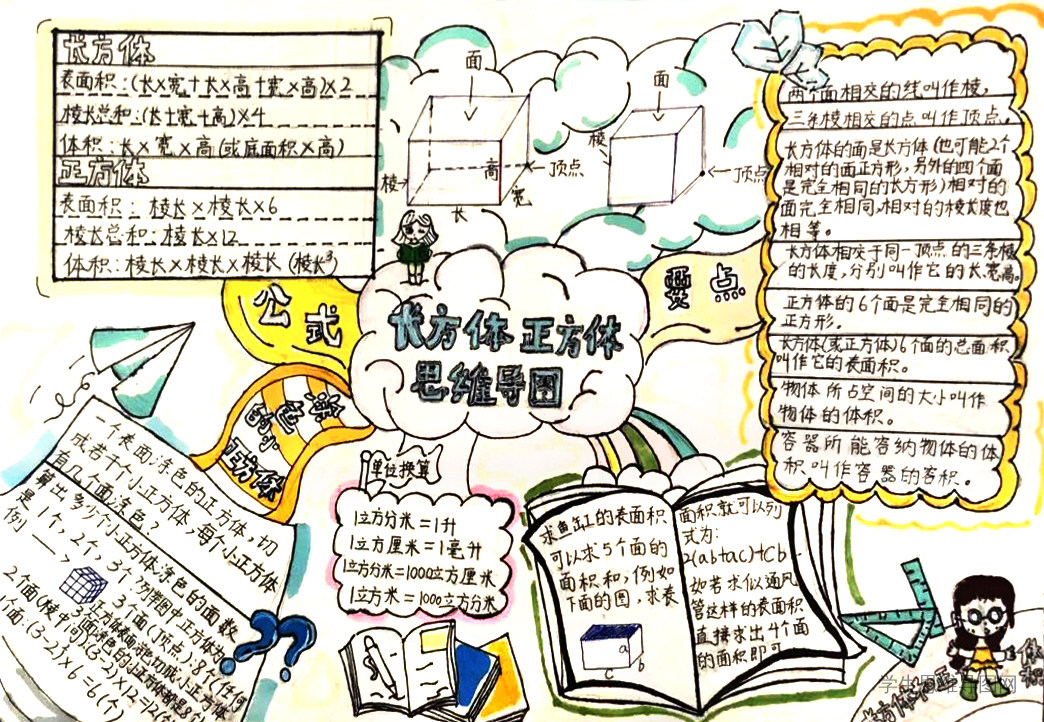 长方体
表面积:(长×宽+长×高+宽×高)×2
棱长总和:(长+宽+高)×4
体积:长×宽×高(或底面积×高)
正方体
表面积: 棱长×棱长×6
棱长总和:棱长×12
体积:棱长×棱长×棱长(棱长³)
面
棱
高
顶点
宽
长
面
棱
顶点
两个面相交的线叫作棱,
三条棱相交的点叫作顶点。
长方体的面是长方体(也可能2个
相对的面正方形,另外的四个面
是完全相同的长方形)相对的
面完全相同,相对的棱长度也
相等。
长方体相交于同一顶点的三条棱
的长度,分别叫作它的长宽高。
正方体的6个面是完全相同的
正方形。
长方体(或正方体)6个面的总面积
叫作它的表面积。
物体所占空间的大小叫作
物体的体积。
容器所能容纳物体的体
积叫作容器的容积。
公式
要点
长方体正方体
思维导图
涂
色的小
正方体
一个表面涂色的正方体,切
成若干个小正方体,每个小正方体
有几个面涂色?
算出多少个小正方体涂色的面数
是1个,2个,3个
例)
3个面(顶点):8个
2个面(棱中间):(3-2)×12=12(个)
1个面:(3-2)²×6=6(个)
单位换算
1立方分米=1升
1立方厘米=1毫升
1立方分米=1000立方厘米
1立方米=1000立方分米
求鱼缸的表面积
可以求5个面的
面积和,例如
下面的图,求表
a
b
c
面积就可以列
式为:
2(ab+ac)+cb
如若求似通风
管这样的表面积
直接求出4个面
的面积即可